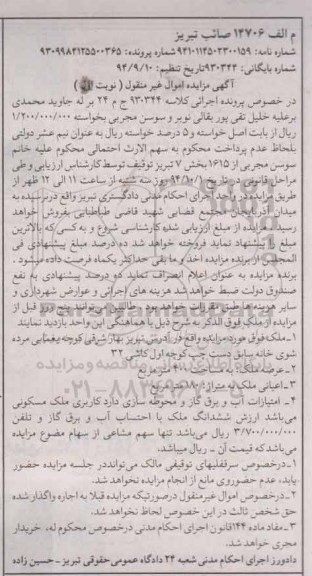 م الف ۱۴۷۰۶ صائب تبریز
شماره نامه: ۹۴۱۰۱۱۴۵۰۲۳۰۰۱۵۹ شماره پرونده: ۹۳۰۹۹۸۴۱۲۵۵۰۰۳۶۵
شماره بایگانی: ۹۳۰۳۴۴ تاریخ تنظیم: ۹۴/۹/۱۰
آگهی مزایده اموال غیر منقول ( نوبت
در خصوص پرونده اجرائی کلاسه ۹۳۰۳۴۴ ج م ۲۴ بر له جاوید محمدی
برعلیه خلیل تقی پور بقائی نوبر و سوسن مجربی بخواسته ۱/۲۰۰/۰۰۰/۰۰۰
ریال از بابت اصل خواسته و ۵ درصد خواسته ریال به عنوان نیم عشر دولتی
بلحاظ عدم پرداخت محکوم به سهم الارث احتمالی محکوم علیه خانم
سوسن مجربی از ۱۶۱۵ بخش ۷ تبریز توقیف توسط کارشناس ارزیابی و طی
مراحل قانونی در تاریخ ۹۴/۱۰/۱ روز سه شنبه از ساعت ۱۱ الی ۱۲ ظهر از
طریق مزایده در واحد اجرای احکام مدنی دادگستری تبریز واقع در نرسیده به
میدان آذربایجان مجتمع قضایی شهید قاضی طباطبایی بفروش خواهد
رسید. مزایده از مبلغ ارزیابی شده کارشناسی شروع و به کسی که بالاترین
مبلغ را پیشنهاد نماید فروخته خواهد شد ده درصد مبلغ پیشنهادی فی
المجلس از برنده مزایده اخذ و ما بقی حداکثر یکماه فرصت داده میشود.
برنده مزایده به عنوان اعلام انصراف نماید ده درصد پیشنهادی به نفع
صندوق دولت ضبط خواهد شد هزینه های اجرائی و عوارض شهرداری و
سایر هزینه ها طبق مقررات خواهد بود. طالبین می توانند پنج روز قبل از
مزایده از ملک فوق الذکر به شرح ذیل با هماهنگی این واحد بازدید نمایند
۱-ملک فوق مورد مزایده واقع در آدرس تبریز بهار شرقی کوچه یغمایی مرده
شوی خانه سابق دست چپ کوچه اول کاشی ۳۲
۲-عرصه ملک: به مساحت متر مربع
۳-اعیانی ملک به متراژ: ۸۰ متر مربع
۴- امتیازات آب و برق گاز و محوطه سازی دارد کاربری ملک مسکونی
می‌باشد ارزش ششدانگ ملک با احتساب آب و برق گاز و تلفن
۳/۷۰۰/۰۰۰/۰۰۰ ریال می‌باشد تنها سهم مشاعی از سهام مضوع مزایده
می‌باشد که قیمت آن - ریال میباشد.
۱-درخصوص سرقفلیهای توقیفی مالک می‌تواند در جلسه مزایده حضور
یابد، عدم حضور وی مانع از انجام مزایده نخواهد شد.
۲-درخصوص اموال غیرمنقول درصورتیکه مزایده قبلا به اجاره واگذار شده
حق شخص ثالث در این خصوص لحاظ نخواهد شد.
۳-مفاد ماده ۱۴۴ قانون اجرای احکام مدنی درخصوص محکوم له، خریدار
مجری خواهد شد.
دادورز اجرای احکام مدنی شعبه ۲۴ دادگاه عمومی حقوقی تبریز - حسین زاده